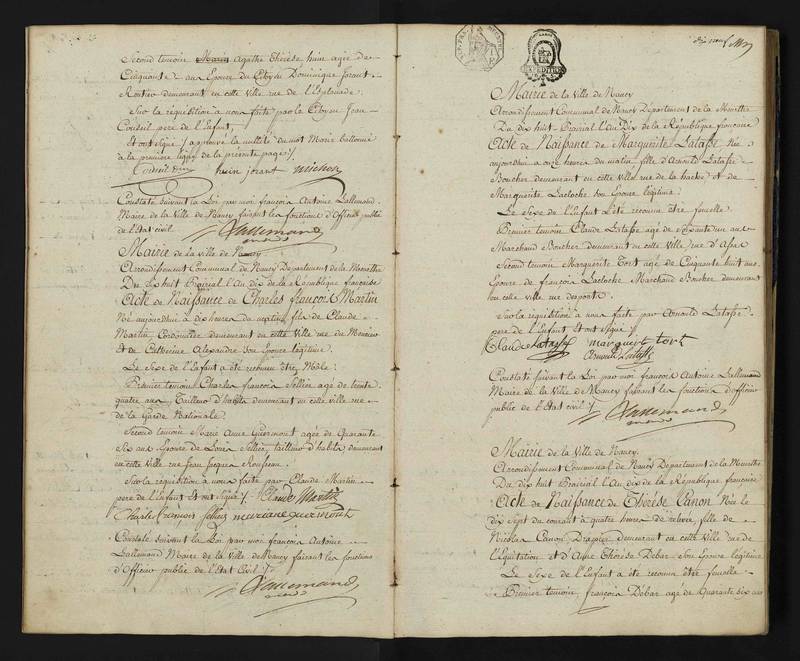 Second temoin Marie Agathe Thérèse huin agée de
Cinquante aus Epouse du Citoyen Dominique Jorant
Rentier demeurant en cette ville rue de l'Esplanade
Sur la réquisition à nous faite par le Citoyen Jean
pere de l'Enfant,
Et ont signé / approuvé la nullité du mot Marie battonné
à la premiere ligne de la présente page /.
huin jorant michon
Constaté suivant la Loi par moi françois Antoine Lallemand
Maire de la Ville de Nancy faisant les fonctions d'Officier public
de l'Etat civil
Lallemand
Mairie de la ville de Nancy
Arrondissement Communal de Nancy Département de la Meurthe
Du dix huit Prairial l'An Dix de la République française
Acte de Naissance de Charles françois Martin
Né aujourdhui à dix heures du matin, fils de Claude
Martin Cordonnier demeurant en cette ville rue
Et de Catherine Alexandre son Epouse légitime
Le Sexe de l'Enfant a été reconnu être Mâle :
Premier temoin Charles françois Sellier agé de trente
quatre aus Tailleur d'habits demeurant en cette ville rue
de la Garde Nationale
Second temoin Marie Anne Guermont agée de Quarante
Six aus Epouse de Louis Sellier, tailleur d'habits demeurant
en cette ville rue Jean Jacques Rousseau
Sur la réquisition à nous faite par Claude Martin
pere de l'Enfant Et ont signé /. Claude Martin
Charle François Sellier mariane guermont
Constaté suivant la Loi par moi françois Antoine
Lallemand Maire de la Ville de Nancy faisant les fonctions
d'Officier public de l'Etat Civil /.
Lallemand
dix neuf
Mairie de la Ville de Nancy
Arrondissement Communal de Nancy Département de la Meurthe
Du dix huit Prairial l'An Dix de la République française
Acte de Naissance de Marguerite Lataße Née
aujourdhui à onze heures du matin fille d'Arnould Lataße
Boucher demeurant en cette ville rue de la hache et de
Marguerite Lacloche son Epouse légitime :
Le Sexe de l'Enfant a été reconnu être femelle
Premier temoin Claude Lataße agé de Soixante aus
Marchand Boucher demeurant en cette Ville rue
Second temoin Marguerite Tort agée de Cinquante huit aus
Epouse de françois Lacloche Marchand Boucher demeurant
en cette ville rue
Sur la réquisition à nous faite par Arnould Lataße
pere de l'Enfant Et ont signé /.
Claude Lataße marguerit tort
Arnould Lataße
Constaté suivant la Loi par moi françois Antoine Lallemand
Maire de la Ville de Nancy faisant les fonctions d'officier
public de l'Etat civil /.
Lallemand
Mairie de la Ville de Nancy.
Arrondissement Communal de Nancy Département de la Meurthe
Du dix huit Prairial l'An dix de la République française
Acte de Naissance de Thérèse Canon Née le
dix sept du courant à quatre heures de relevée, fille de
Nicolas Canon Drapier demeurant en cette ville rue de
l'Equitation et d'Anne Thérèse Debar son Epouse légitime
Le Sexe de l'Enfant a été reconnu être femelle
Premier temoin, françois Debar agé de Quarante dix aus